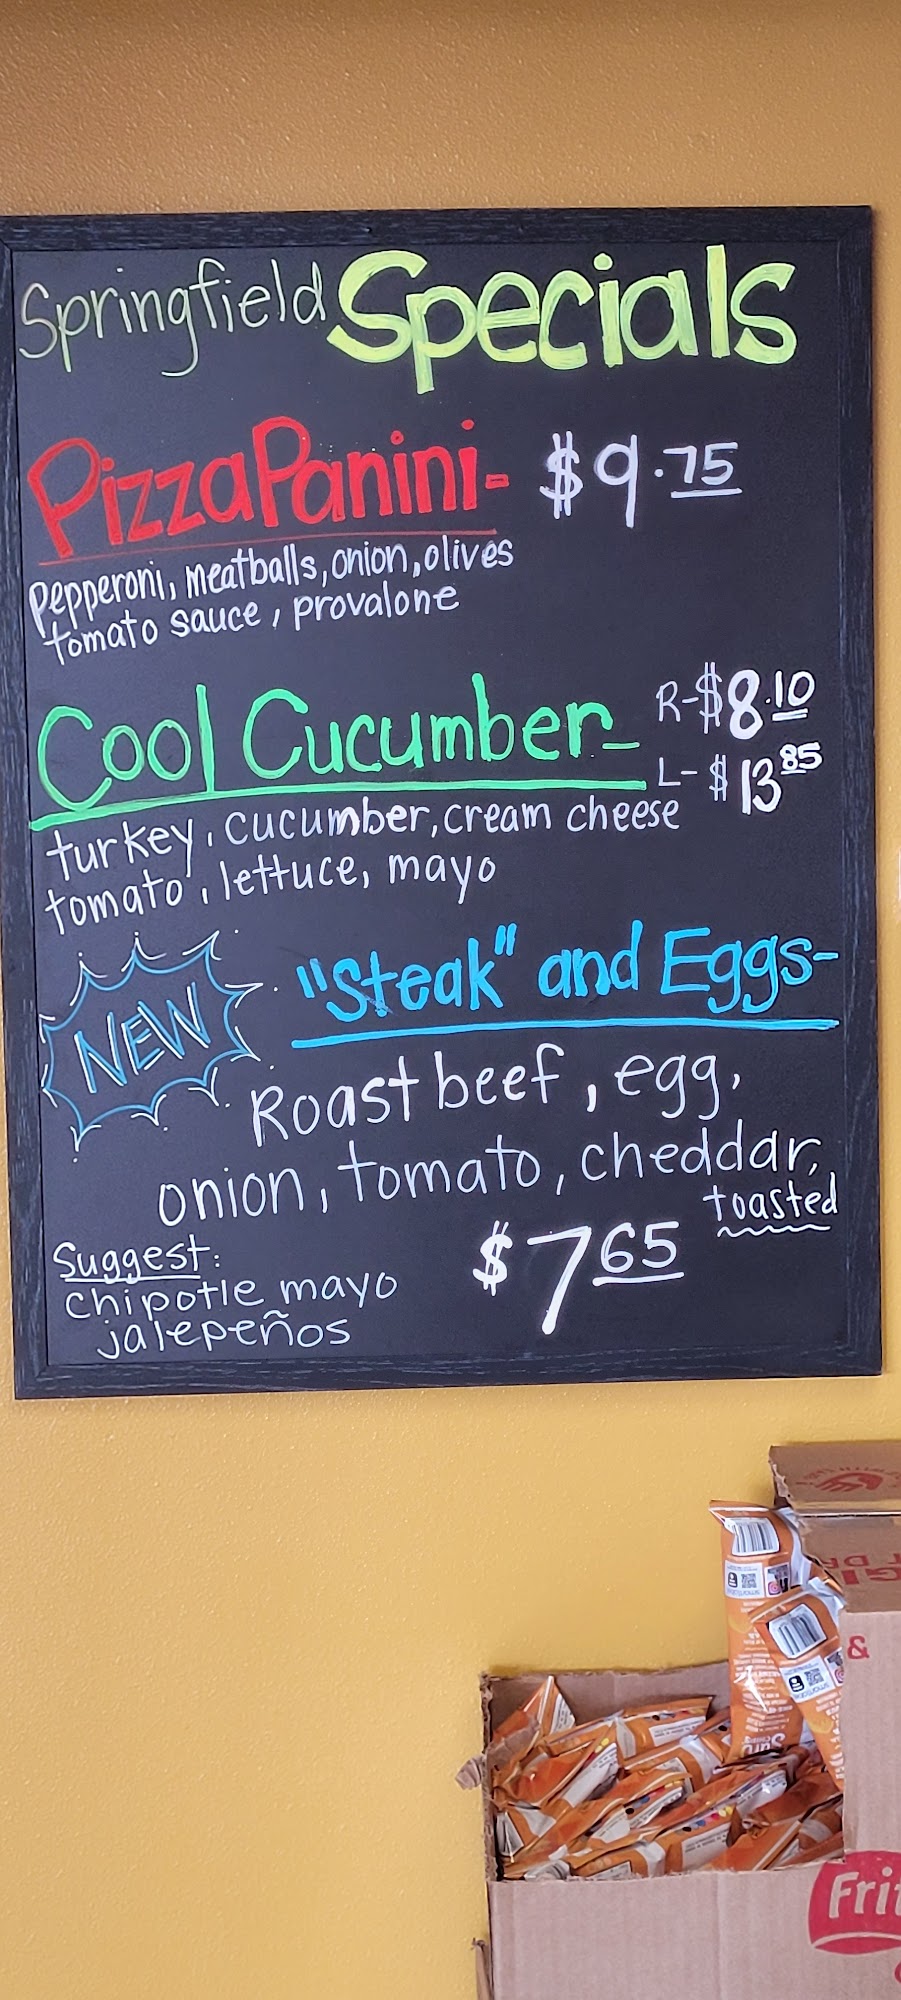 Springfield Specials
Pizza Panini- $9.75
Pepperoni, meatballs, onion, olives
tomato sauce, provalone
Cool Cucumber- R-$8.10
L-$13.85
turkey, cucumber, cream cheese
tomato, lettuce, mayo
NEW
"Steak" and Eggs-
Roast beef, egg,
onion, tomato, cheddar,
toasted
$7.65
Suggest:
chipotle mayo
jalepeños
&
Frit